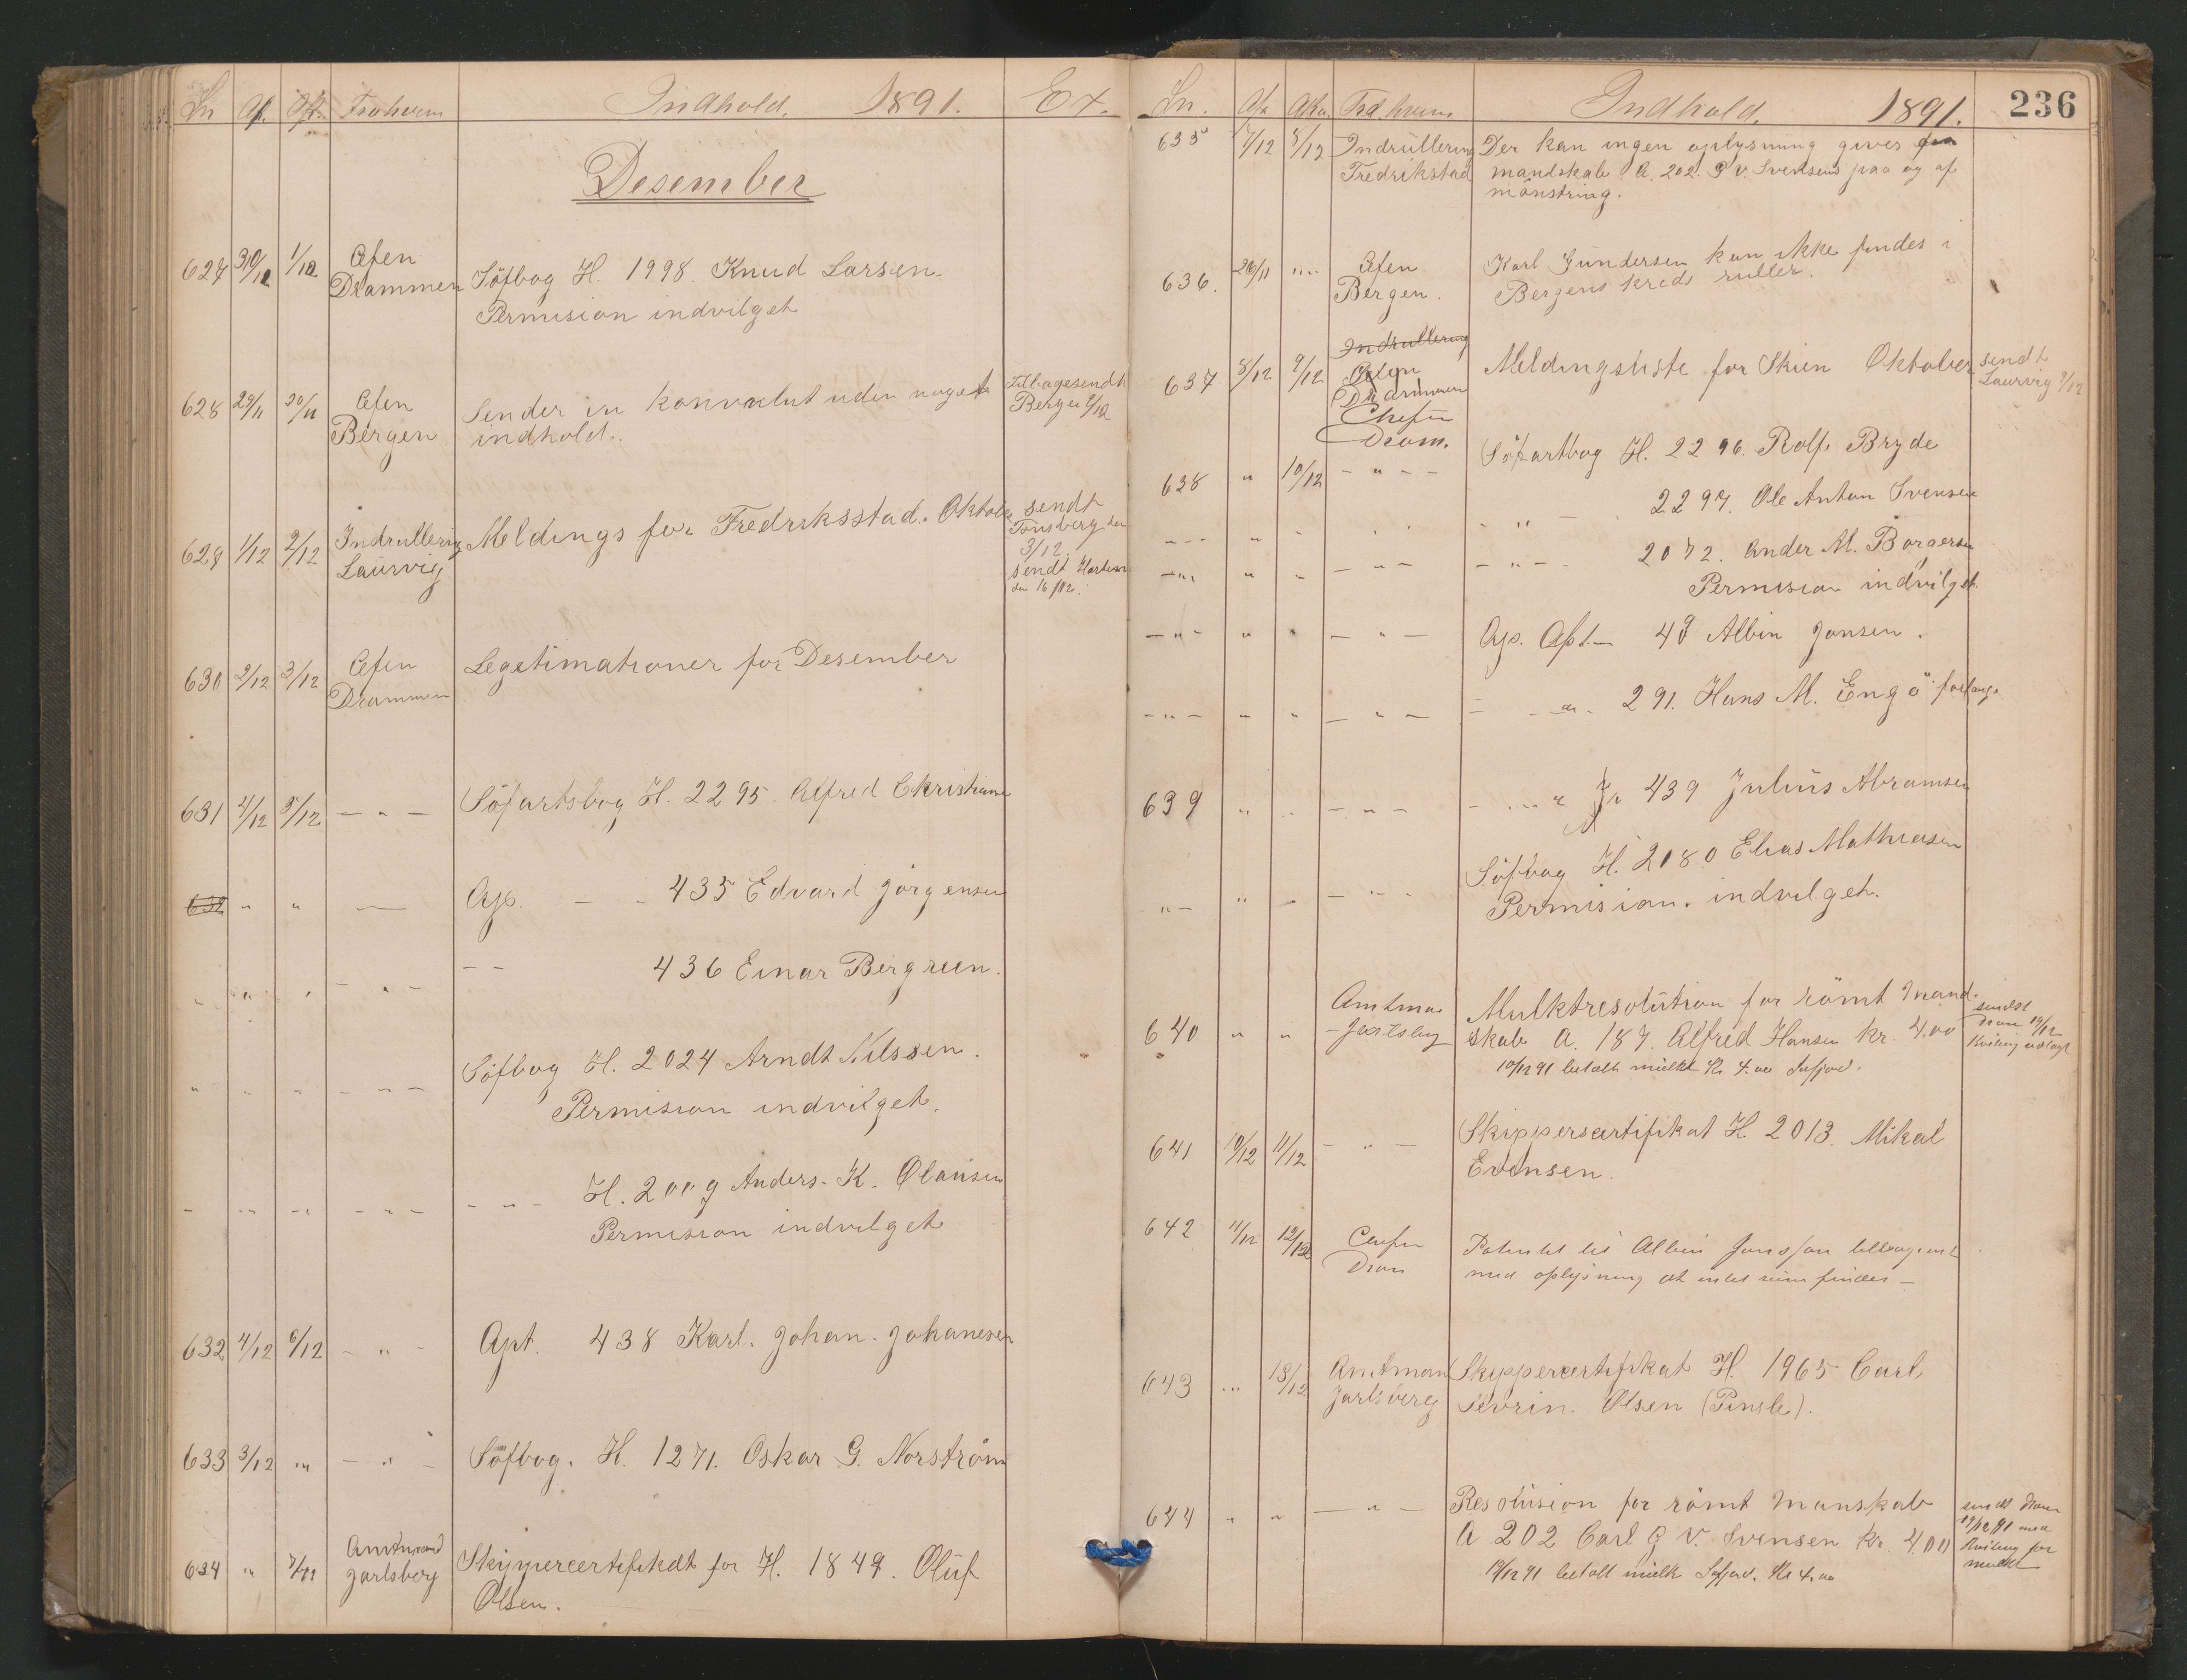 Ln Af. Fra hvem Indhold. 1891. Ex.
Desember
627 30/12 1/12 Cefen Drammen Söfbog H. 1998. Knud Larsen
Permision indvilget
628 29/11 30/11 Cefen Bergen Sender en konvolut uden noget
indhold.
Tilbagesendt
Bergen 2/12
629 1/12 2/12 Indrullering Laurvig Meldings for Fredriksstad. Oktober
sendt
Tönsberg den
3/12.
sendt Horten
den 16/12.
630 2/12 3/12 Cefen Drammen Legitimationer for Desember
631 4/12 5/12 — " — Söfartsbog H. 2295. Alfred Christianse
632 " " — Ap. — — 435 Edvard Jörgensen
- " " - " - - - 436 Einar Bergreen.
" " " - " - Söfbog H. 2024 Arndt Nilssen.
Permision indvilget.
- " - " - H. 2009 Anders. K. Olausen
Permision indvilget
632 4/12 6/12 - " - Apt. 438 Karl. Johan. Johanesen
633 3/12 " - " - Söfbog. H. 1271. Oskar G. Norström
634 " Amtmand Jarlsberg Skippercertifikat for H. 1849. Oluf
Olsen.
Ln. Indhold. 1891. 236
635 7/12 8/12 Indrullering Fredrikstad Der kan ingen oplysning gives fra
mandskab A. 202. G V. Svensens paa og af
mönstring.
636. 26/11 " " Cefen Bergen. Karl Gundersen kan ikke findes i
Bergens kreds ruller.
637 8/12 9/12 Indrullering
Cefen
Drammen
Chefen
Dram.
Meldingsliste for Skien Oktober
sendt
Laurvig 9/12
638 " 10/12 - " - - Söfartbog H. 2296. Rolf Bryde
- " - 2297. Ole Anton Svensen
- " - 2072. Ander M. Borgersen
Permision indvilget.
- " - " - " - Ap. Apt — 49 Albin Jonsen.
- " - - " - " - 291. Hans M. Engö forlange
639 " " - " - - " Jr 439 Julius Abramsen
" - " - - " - Söfbog H. 2180 Elias Mathiasen
Permision. indvilget.
640 " " Amtman Jarlsberg Mulktresolution for römt mand-
skab A. 187. Alfred Hansen kr. 4.00
10/12 91 betalt mulkt Kr 4.00
sendt
Dram 14/12
641 10/12 11/12 - " - Skippersertifikat H. 2013. Mikal
Evensen.
642 11/12 12/12 Chefen Dram til Albin Jonsson
med oplysning at
643 " 13/12 Amtman Jarlsberg Skippercertifikat H. 1965 Carl
Sevrin. Olsen (Pinsle).
644 " " - " - Resolusion for römt manskab
A 202 Carl G V. Svensen kr. 4.00
betalt mulkt Kr 4.00
sendt Dram
19/12 91 med
Kvitering for
mulkt